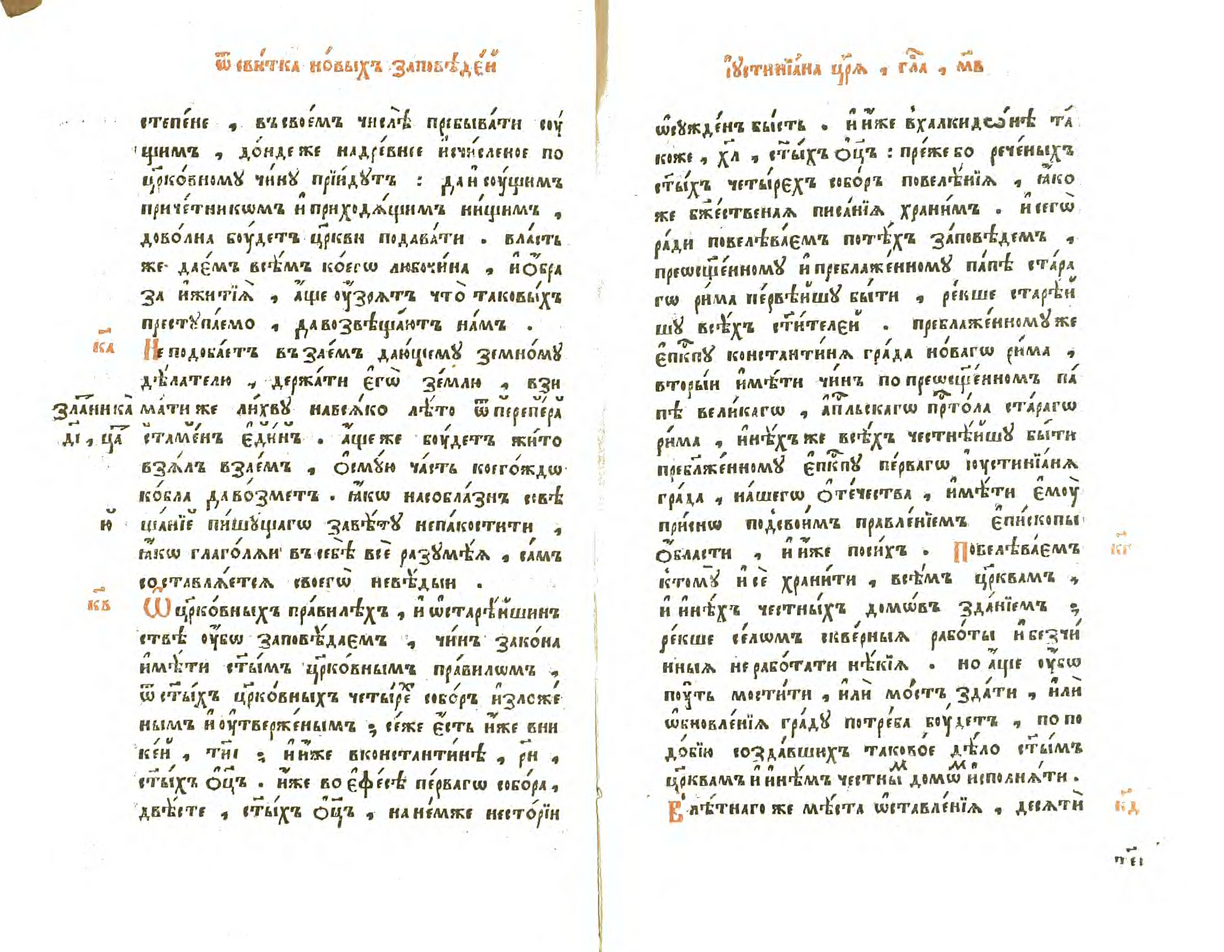 ѿ сви́тка но́выхъ заповѣде́й
степе́не , въсвое́мъ числѣ̀ пребыва́ти соу́
щимъ , до́ндеже надре́внее исчисле́ное по
цр҃ко́вному чи́ну прїи́дутъ : да и҆соу́щимъ
приче́тникѡмъ и҆приходѧ́щимъ ни́щимъ ,
дово́лна боу́детъ цр҃кви подава́ти . вла́сть
же дае́мъ всѣ́мъ ко́егѡ любочи́на , и҆ о҆́бра
за и҆житїѧ̀ , а҆́ще оу҆́зрѧтъ что̀ таковы́хъ
преступа́емо , давозвѣща́ютъ на́мъ .
к҃а
Не подоба́етъ въ зае́мъ даю́щему земно́му
дѣ́лателю , держа́ти є҆гѡ̀ зе́млю , взи
зла́тника̀
ма́ти же ли́хву навсѧ́ко лѣ́то ѿ перпе́ра
д҃і , ца҃
ста́мен є҆ди́нъ . а҆́ще же боу́детъ жи́то
взѧ́лъ взае́мъ , о҆сму́ю ча́сть коего́ждѡ
ко́бла даво́зметъ . ꙗ҆́кѡ насобла́знъ совѣ
и҆
ща́нїе пи́шущагѡ завѣ́ту непа́костити ,
ꙗ҆́кѡ глаго́лѧи въ себѣ̀ всѐ разумѣ́ѧ , са́мъ
составлѧ́етсѧ своегѡ̀ невѣ́дыи .
к҃в
Ѡ цр҃ко́вныхъ пра́вилѣхъ , и҆ ѡ҆старѣ́йшин
ствѣ оу҆́бѡ заповѣ́даемъ , чи́нъ зако́на
и҆мѣ́ти ст҃ы́мъ цр҃ко́внымъ пра́вилѡмъ ,
ѿ ст҃ы́хъ цр҃ко́вныхъ четы́ре собо́ръ и҆зложе́
нымъ и҆оу҆тверже́нымъ ; се́же є҆́сть и҆́же вни
ке́и , ти҃і ; и҆ и҆́же вконстанти́нѣ , рн҃ ,
ст҃ы́хъ о҆ц҃ъ . и҆́же во є҆фе́сѣ пе́рвагѡ собо́ра,
двѣ́сте , ст҃ы́хъ о҆ц҃ъ , нане́мже несто́рїи
і҆устинїа́на цр҃ѧ , гл҃а , м҃в
ѡ҆сужде́нъ бы́сть . и҆ и҆́же вхалкидѡ́нѣ та́
коже , хл҃ , ст҃ы́хъ о҆ц҃ъ : пре́жебо рече́ныхъ
ст҃ы́хъ четы́рехъ собо́ръ повелѣ́нїѧ , ꙗ҆́ко
же бж҃е́ственаѧ писа́нїѧ храни́мъ . и҆ сегѡ̀
ра́ди повелѣва́емъ потѣ́хъ за́повѣдемъ ,
преѡсщ҃е́нному и҆ преблаже́нному па́пѣ ста́ра
гѡ ри́ма первѣ́ишу бы́ти , ре́кше старѣ́й
шу всѣ́хъ ст҃и́телей . преблаже́нномуже
є҆пк҃пу константи́нѧ гра́да но́вагѡ ри́ма ,
вторы́и и҆мѣ́ти чи́нъ по преѡсщ҃е́нномъ па́
пѣ вели́кагѡ , а҆пл҃ьскагѡ прⷭ҇то́ла ста́рагѡ
ри́ма , и҆нѣ́хъже всѣ́хъ честнѣ́йшу бы́ти
пребл҃же́нному є҆пк҃пу пе́рвагѡ і҆оустинїа́нѧ
гра́да , на́шегѡ о҆те́чества , и҆мѣ́ти є҆моу̀
при́снѡ подсвои́мъ правле́нїемъ є҆пи́скопы
о҆́бласти , и҆ и҆́же поси́хъ . Повелѣва́емъ
к҃г
ктому̀ и҆ сѐ храни́ти , всѣ́мъ цр҃квамъ ,
и҆ и҆нѣ́хъ честны́хъ домѡ́въ зда́нїемъ ;
ре́кше се́лѡмъ скве́рныѧ рабо́ты и҆ безчи́
нныѧ нерабо́тати нѣ́кїѧ . но а҆́ще оу҆́бѡ
поу́ть мости́ти , и҆лѝ мо́стъ зда́ти , и҆лѝ
ѡ҆бновле́нїѧ гра́ду потре́ба боу́детъ , по по
до́бїю созда́вшихъ таково́е дѣ́ло ст҃ы́мъ
цр҃квамъ и҆ и҆нѣ́мъ честны́м домѡ́м и҆сполнѧ́ти .
Влѣ́тнаго же мѣ́ста ѡ҆ставле́нїѧ , десѧтѝ
к҃д